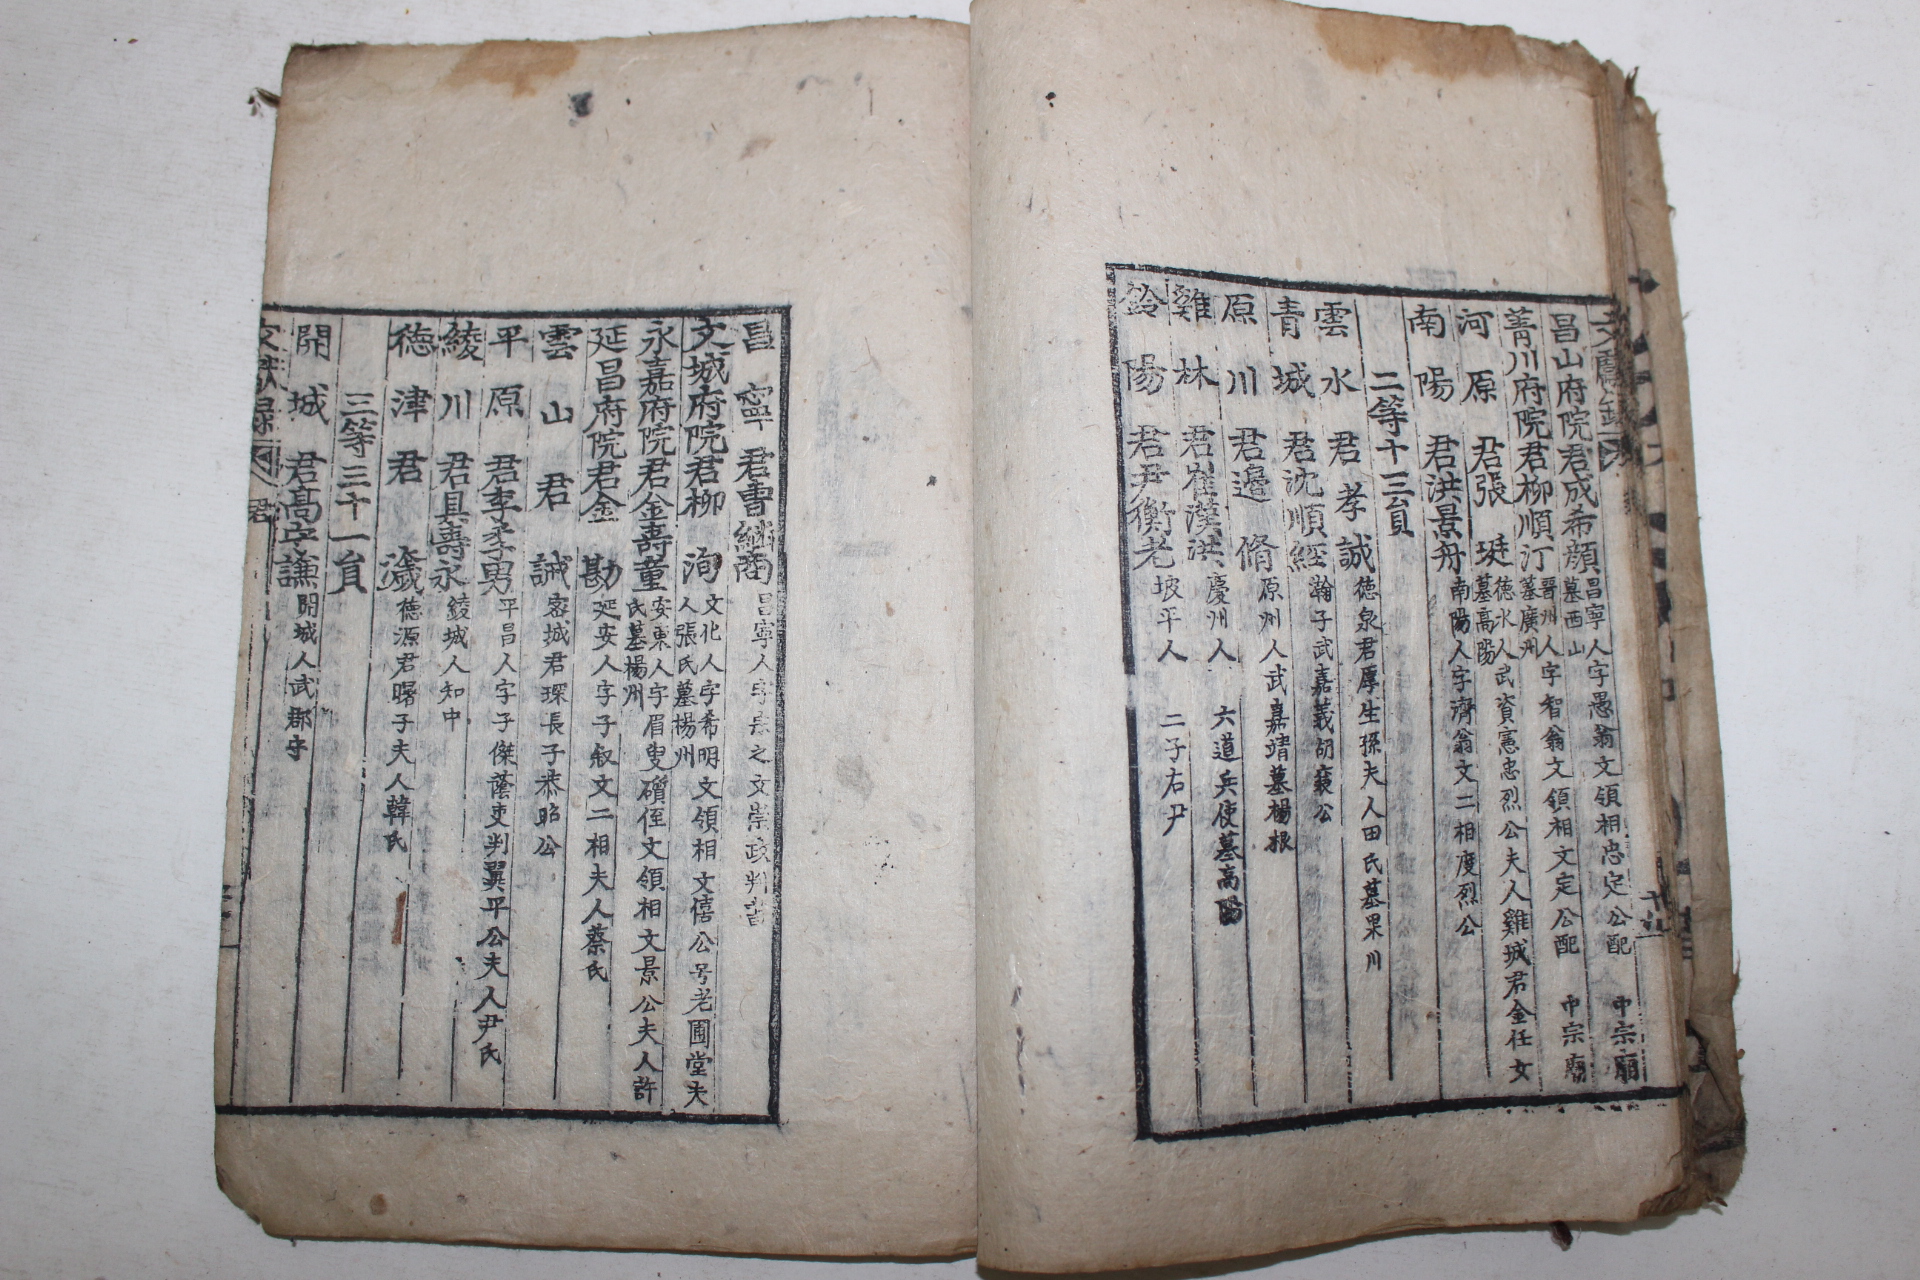 昌山府院君成希顔 昌寧人字愚翁文領相忠定公配 中宗廟墓西山
菁川府院君柳順汀 晋州人字智翁文領相文定公配 中宗廟墓廣州
河原君張珽 徳水人武資憲忠烈公夫人雞城君金任女墓高陽
南陽君洪景舟 南陽人字濟翁文二相度烈公
二等十三員
雲水君孝誠 徳泉君厚生孫夫人田氏墓果川
青城君沈順經 瀚子武嘉義胡襄公
原川君邉脩 原州人武嘉靖墓楊根
雞林君崔漢洪 慶州人 六道兵使墓高陽
鈴陽君尹衡老 坡平人 二子右尹
昌寧君曺繼商 昌寧人字 之文崇政判書
文城府院君柳洵 文化人字希明文領相文僖公号老圃堂夫人張氏墓楊州
永嘉府院君金壽童 安東人字眉叟礩侄文領相文景公夫人許氏墓楊州
延昌府院君金勘 延安人字子叙文二相夫人蔡氏
雲山君誡 宻城君琛長子恭昭公
平原君李季男 平昌人字子傑蔭吏判翼平公夫人尹氏
綾川君具壽永 綾城人知中
徳津君濊 徳源君曙子夫人韓氏
三等三十一員
開城君髙守謙 開城人武郡守
文獻録 君